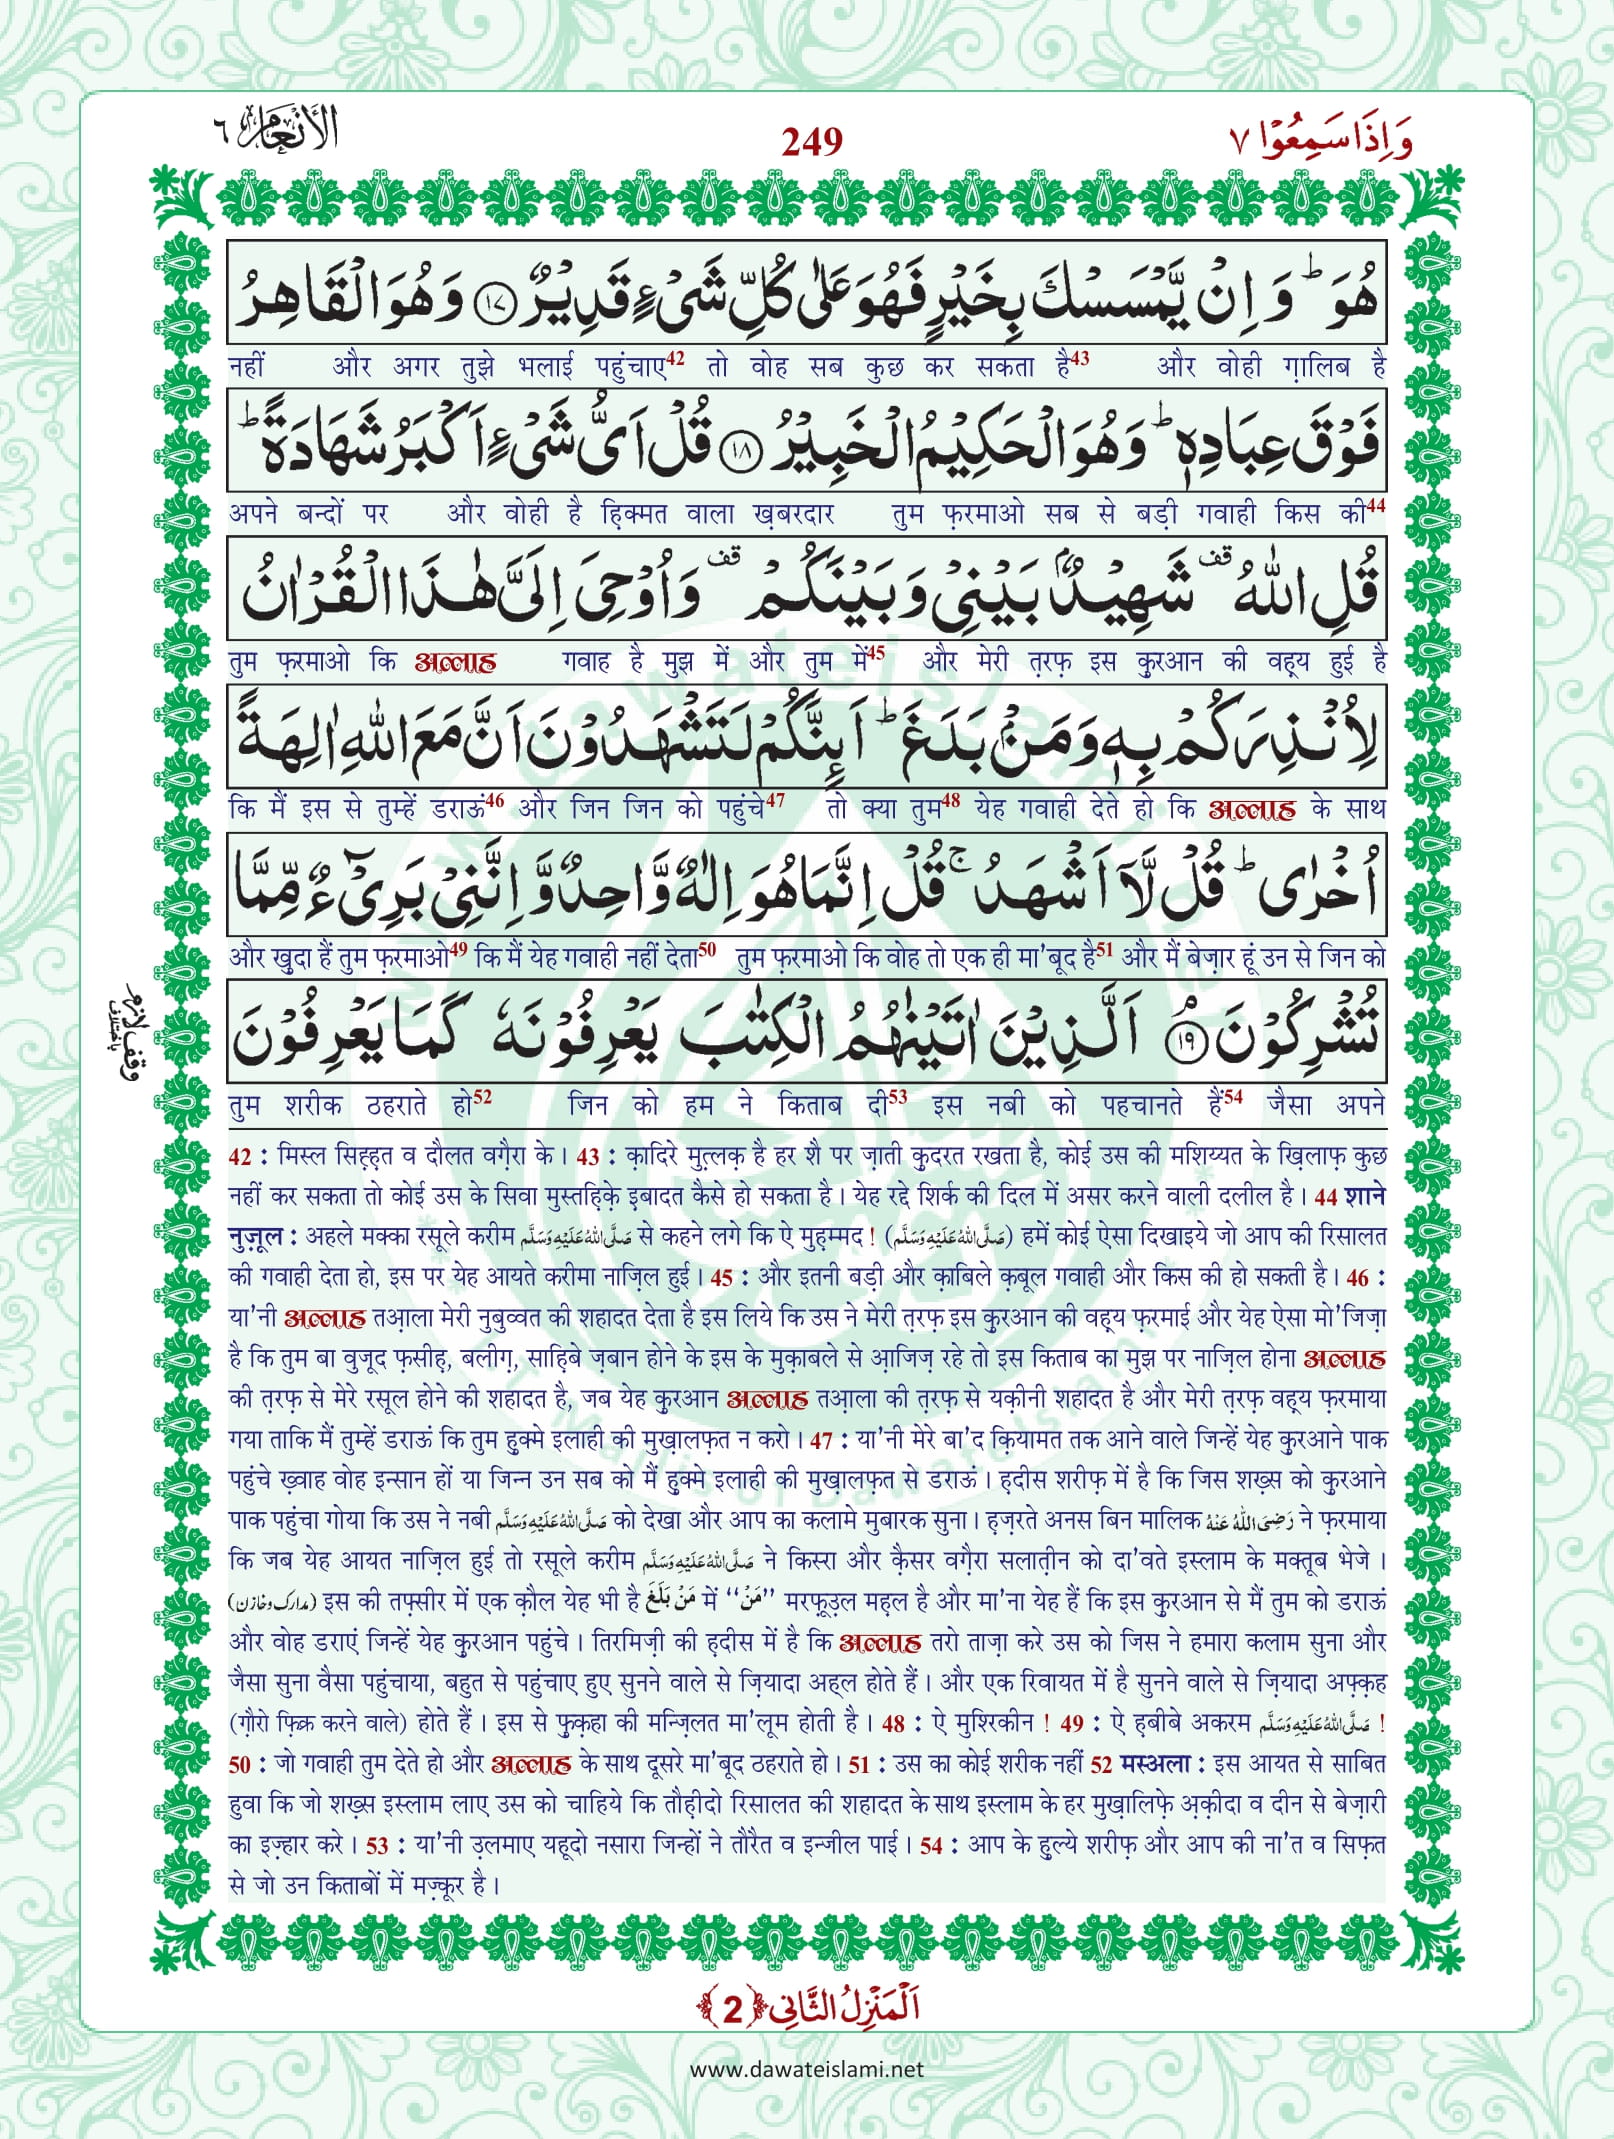 الأنعام ٦
249
وَاِذَا سَمِعُوۡا ٧
هُوَ ؕ وَ اِنۡ یَّمۡسَسۡكَ بِخَیۡرٍ فَهُوَ عَلٰى كُلِّ شَیۡءٍ قَدِیۡرٌ ﴿۱۷﴾ وَ هُوَ الۡقَاهِرُ
नहीं और अगर तुझे भलाई पहुंचाए42 तो वोह सब कुछ कर सकता है43 और वोही ग़ालिब है
فَوۡقَ عِبَادِهٖ ؕ وَ هُوَ الۡحَكِیۡمُ الۡخَبِیۡرُ ﴿۱۸﴾ قُلۡ اَیُّ شَیۡءٍ اَكۡبَرُ شَهَادَةً ؕ
अपने बन्दों पर और वोही है हि़क्मत वाला ख़बरदार तुम फ़रमाओ सब से बड़ी गवाही किस की44
قُلِ اللّٰهُ ۟ۙ شَهِیۡدٌۢ بَیۡنِیۡ وَ بَیۡنَكُمۡ ۟ وَ اُوۡحِیَ اِلَیَّ هٰذَا الۡقُرۡاٰنُ
तुम फ़रमाओ कि अल्लाह गवाह है मुझ में और तुम में45 और मेरी त़रफ़ इस क़ुरआन की वह़्य हुई है
لِاُنۡذِرَكُمۡ بِهٖ وَ مَنۡۢ بَلَغَ ؕ اَىِٕنَّكُمۡ لَتَشۡهَدُوۡنَ اَنَّ مَعَ اللّٰهِ اٰلِهَةً
कि मैं इस से तुम्हें डराऊं46 और जिन जिन को पहुंचे47 तो क्या तुम48 येह गवाही देते हो कि अल्लाह के साथ
اُخۡرٰى ؕ قُلۡ لَّاۤ اَشۡهَدُ ۚ قُلۡ اِنَّمَا هُوَ اِلٰهٌ وَّاحِدٌ وَّ اِنَّنِیۡ بَرِیۡٓءٌ مِّمَّا
और ख़ुदा हैं तुम फ़रमाओ49 कि मैं येह गवाही नहीं देता50 तुम फ़रमाओ कि वोह तो एक ही मा'बूद है51 और मैं बेज़ार हूं उन से जिन को
تُشۡرِكُوۡنَ ﴿ۘ۱۹﴾ اَلَّذِیۡنَ اٰتَیۡنٰهُمُ الۡكِتٰبَ یَعۡرِفُوۡنَهٗ كَمَا یَعۡرِفُوۡنَ
وقف لازم
باختلاف
तुम शरीक ठहराते हो52 जिन को हम ने किताब दी53 इस नबी को पहचानते हैं54 जैसा अपने
42 : मिस्ल सिह़्ह़त व दौलत वग़ैरा के। 43 : क़ादिरे मुत़्लक़ है हर शै पर ज़ाती क़ुदरत रखता है, कोई उस की मशिय्यत के ख़िलाफ़ कुछ
नहीं कर सकता तो कोई उस के सिवा मुस्तह़िक़े इ़बादत कैसे हो सकता है। येह रद्दे शिर्क की दिल में असर करने वाली दलील है। 44 शाने
नुज़ूल : अहले मक्का रसूले करीम صَلَّى اللّٰهُ عَلَيْهِ وَسَلَّم से कहने लगे कि ऐ मुह़म्मद ! (صَلَّى اللّٰهُ عَلَيْهِ وَسَلَّم) हमें कोई ऐसा दिखाइये जो आप की रिसालत
की गवाही देता हो, इस पर येह आयते करीमा नाज़िल हुई। 45 : और इतनी बड़ी और क़ाबिले क़बूल गवाही और किस की हो सकती है। 46 :
या'नी अल्लाह तआ़ला मेरी नुबुव्वत की शहादत देता है इस लिये कि उस ने मेरी त़रफ़ इस क़ुरआन की वह़्य फ़रमाई और येह ऐसा मो'जिज़ा
है कि तुम बा वुजूद फ़सीह़, बलीग़, साह़िबे ज़बान होने के इस के मुक़ाबले से आ़जिज़ रहे तो इस किताब का मुझ पर नाज़िल होना अल्लाह
की त़रफ़ से मेरे रसूल होने की शहादत है, जब येह क़ुरआन अल्लाह तआ़ला की त़रफ़ से यक़ीनी शहादत है और मेरी त़रफ़ वह़्य फ़रमाया
गया ताकि मैं तुम्हें डराऊं कि तुम हु़क्मे इलाही की मुख़ालफ़त न करो। 47 : या'नी मेरे बा'द क़ियामत तक आने वाले जिन्हें येह क़ुरआने पाक
पहुंचे ख़्वाह वोह इन्सान हों या जिन्न उन सब को मैं हु़क्मे इलाही की मुख़ालफ़त से डराऊं। ह़दीस शरीफ़ में है कि जिस शख़्स को क़ुरआने
पाक पहुंचा गोया कि उस ने नबी صَلَّى اللّٰهُ عَلَيْهِ وَسَلَّم को देखा और आप का कलामे मुबारक सुना। ह़ज़रते अनस बिन मालिक رَضِىَ اللّٰهُ عَنْهُ ने फ़रमाया
कि जब येह आयत नाज़िल हुई तो रसूले करीम صَلَّى اللّٰهُ عَلَيْهِ وَسَلَّم ने किस्रा और क़ैसर वग़ैरा सलात़ीन को दा'वते इस्लाम के मक्तूब भेजे।
(مدارک و خازن) इस की तफ़्सीर में एक क़ौल येह भी है مَنْ بَلَغَ में ‘‘مَنْ’’ मरफ़ूउ़ल मह़ल है और मा'ना येह हैं कि इस क़ुरआन से मैं तुम को डराऊं
और वोह डराएं जिन्हें येह क़ुरआन पहुंचे। तिरमिज़ी की ह़दीस में है कि अल्लाह तरो ताज़ा करे उस को जिस ने हमारा कलाम सुना और
जैसा सुना वैसा पहुंचाया, बहुत से पहुंचाए हुए सुनने वाले से ज़ियादा अह्ल होते हैं। और एक रिवायत में है सुनने वाले से ज़ियादा अफ़्क़ह
(ग़ौरो फ़िक्र करने वाले) होते हैं। इस से फ़ुक़हा की मन्ज़िलत मा'लूम होती है। 48 : ऐ मुश्रिकीन ! 49 : ऐ ह़बीबे अकरम صَلَّى اللّٰهُ عَلَيْهِ وَسَلَّم !
50 : जो गवाही तुम देते हो और अल्लाह के साथ दूसरे मा'बूद ठहराते हो। 51 : उस का कोई शरीक नहीं 52 मस्अला : इस आयत से साबित
हुवा कि जो शख़्स इस्लाम लाए उस को चाहिये कि तौह़ीदो रिसालत की शहादत के साथ इस्लाम के हर मुख़ालिफ़े अ़क़ीदा व दीन से बेज़ारी
का इज़्हार करे। 53 : या'नी उ़लमाए यहूदो नसारा जिन्हों ने तौरैत व इन्जील पाई। 54 : आप के हु़ल्ये शरीफ़ और आप की ना'त व सिफ़त
से जो उन किताबों में मज़्कूर है।
اَلْمَنْزِلُ الثَّانِی ﴿2﴾
www.dawateislami.net